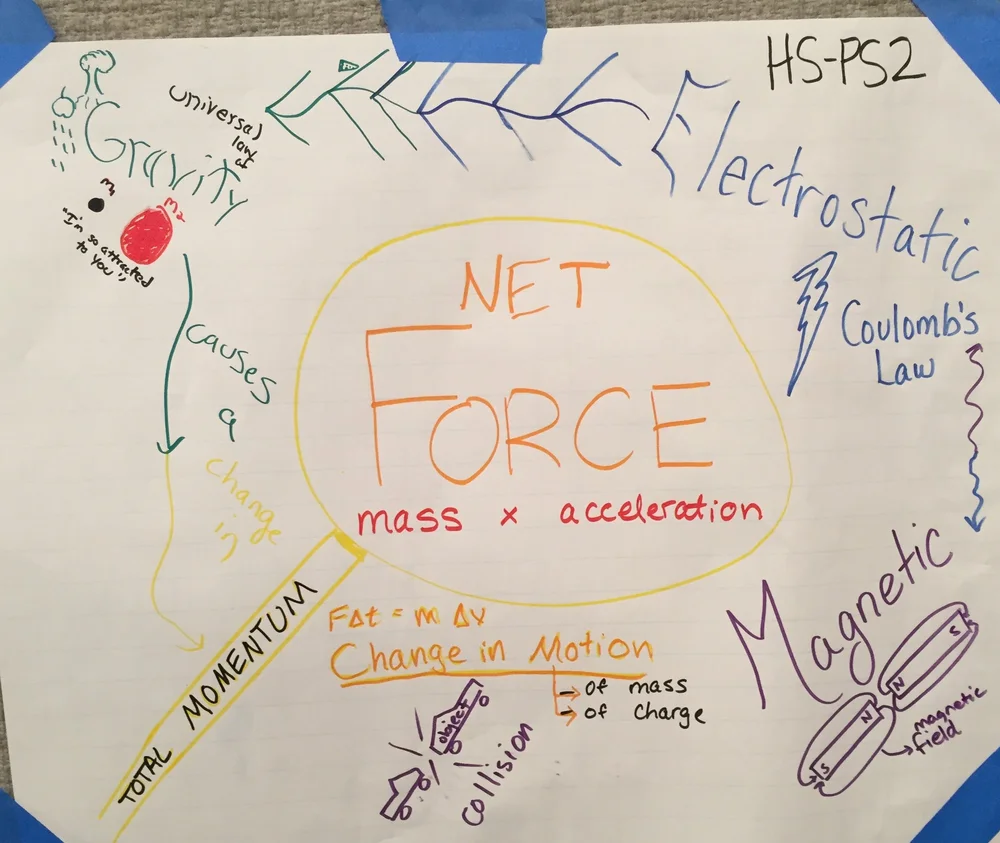 HS-PS2
Gravity
universal
law of
m₁
m₂
"I'm so attracted
to you"
Electrostatic
Coulomb's
Law
causes
a
change
in
NET
FORCE
mass x acceleration
TOTAL MOMENTUM
F∆t = m ∆v
Change in Motion
→ of mass
→ of charge
object
collision
Magnetic
S
N
N
S
magnetic
field